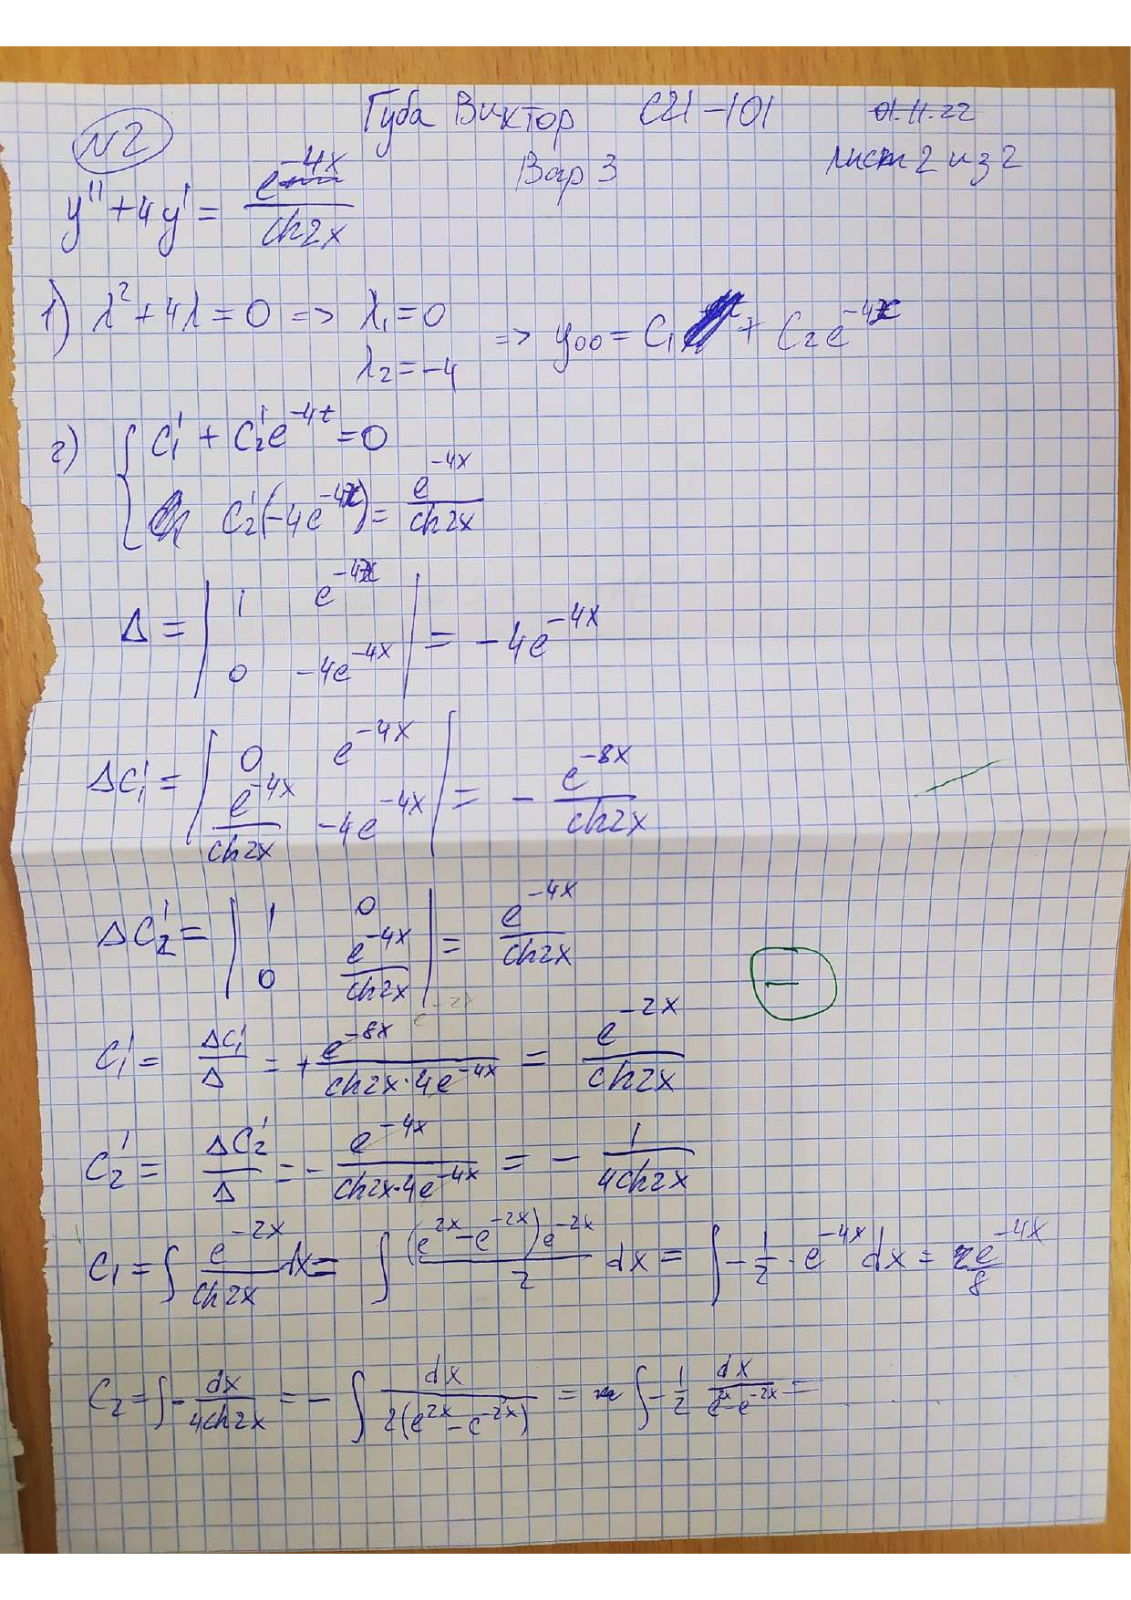 Губа Виктор С21-101 01.11.22
N2 Вар 3 лист 2 из 2
y'' + 4y' = e^{-4x} / ch2x
1) λ² + 4λ = 0 => λ₁ = 0
λ₂ = -4
=> y₀₀ = C₁ + C₂e^{-4x}
2) { C₁' + C₂'e^{-4t} = 0
C₂'(-4e^{-4x}) = e^{-4x} / ch2x
Δ = | 1 e^{-4x} ; 0 -4e^{-4x} | = -4e^{-4x}
ΔC₁' = | 0 e^{-4x} ; e^{-4x}/ch2x -4e^{-4x} | = - e^{-8x} / ch2x
ΔC₂' = | 1 0 ; 0 e^{-4x}/ch2x | = e^{-4x} / ch2x
e^{-2x}
C₁' = ΔC₁'/Δ = + e^{-8x} / (ch2x·4e^{-4x}) = e^{-2x} / ch2x
C₂' = ΔC₂'/Δ = - e^{-4x} / (ch2x·4e^{-4x}) = - 1 / 4ch2x
C₁ = ∫ e^{-2x}/ch2x dx = ∫ (e^{2x} - e^{-2x})e^{-2x} / 2 dx = ∫ - 1/2 · e^{-4x} dx = e^{-4x} / 8
C₂ = ∫ - dx/4ch2x = - ∫ dx / 2(e^{2x} - e^{-2x}) = ∫ - 1/2 dx / e^{2x} - e^{-2x} =